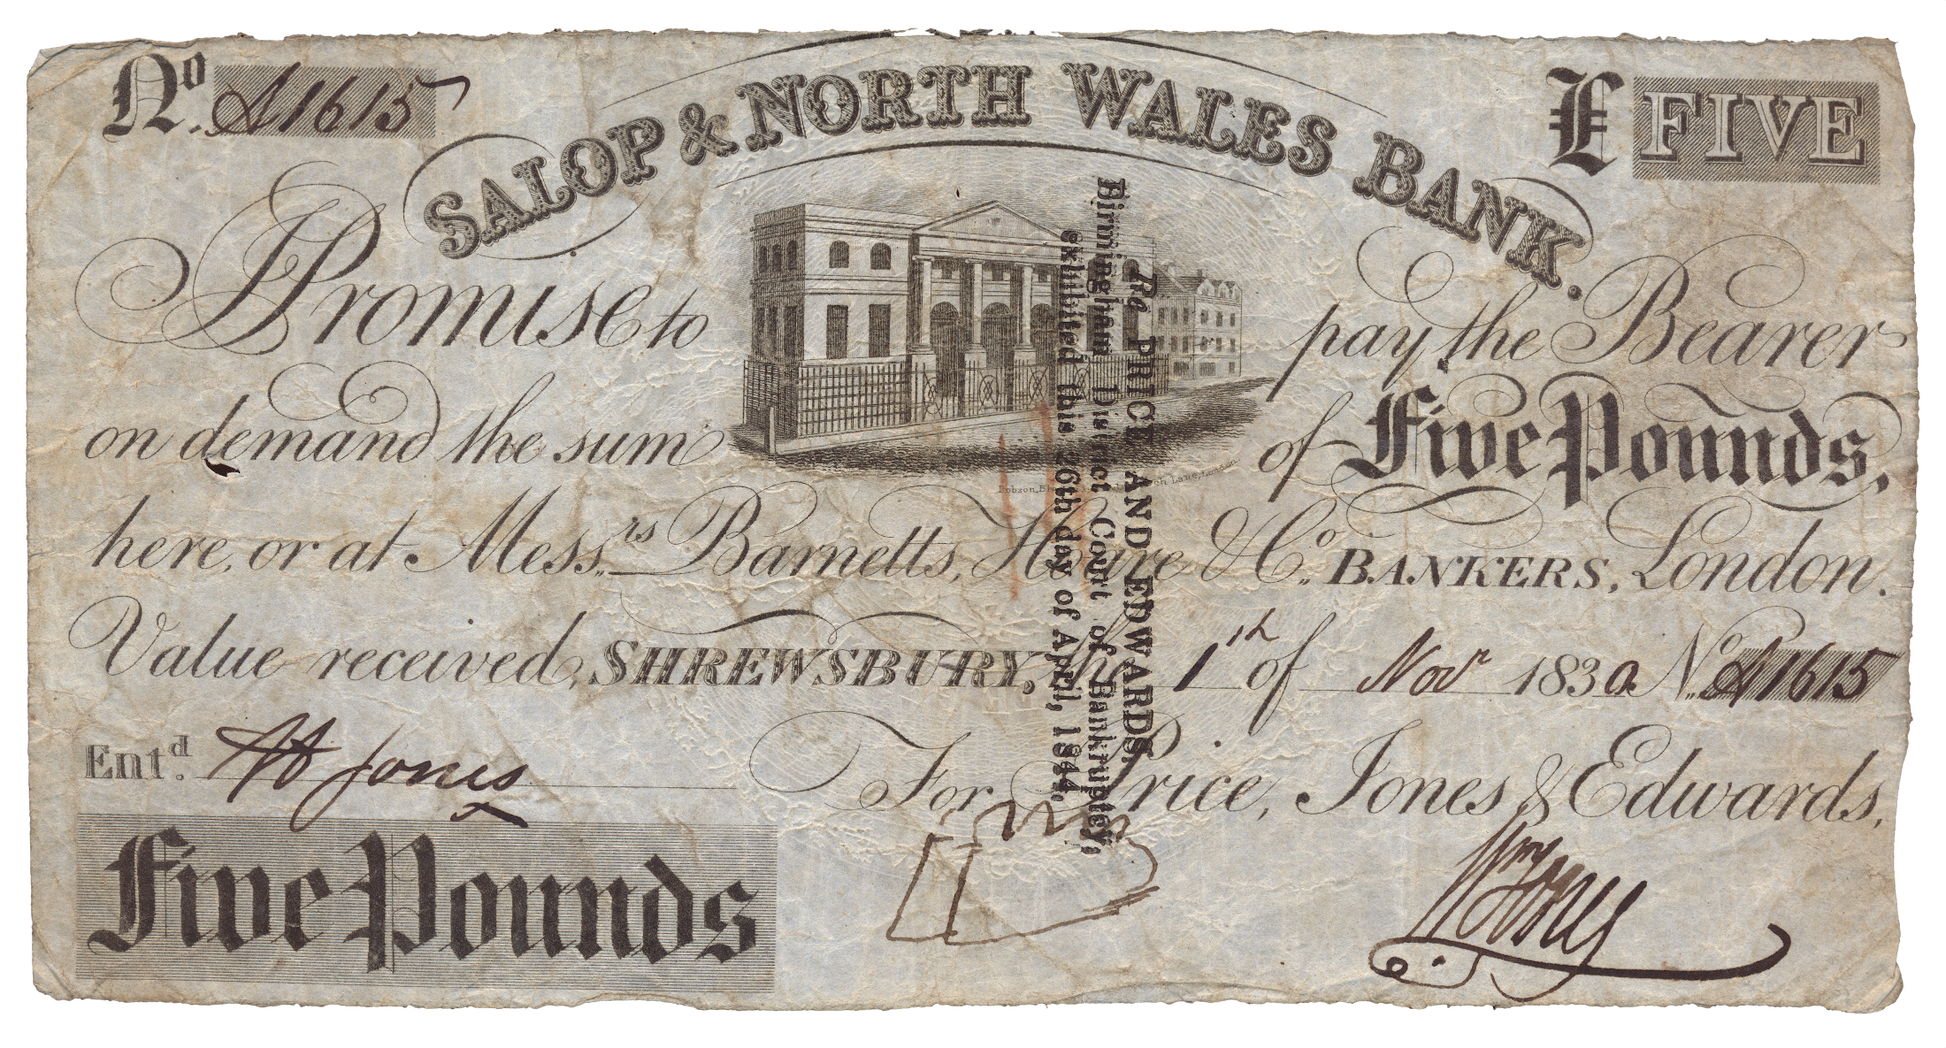 No. A1615
SALOP & NORTH WALES BANK.
£ FIVE
I Promise to pay the Bearer
on demand the sum of Five Pounds,
here, or at Mess.rs Barnetts, Hoare & Co. BANKERS, London.
Value received, SHREWSBURY, the 1th of Novr 1830. No. A1615
Entd. Jones
For Price, Jones & Edwards,
Five Pounds
Wm Jones
Re PRICE AND EDWARDS,
Birmingham District Court of Bankruptcy,
exhibited this 26th day of April, 1844.